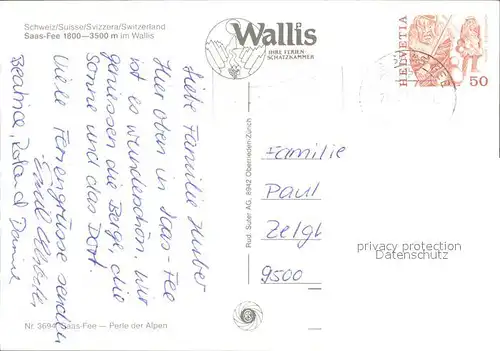 Schweiz/Suisse/Svizzera/Switzerland
Saas-Fee 1800—3500 m im Wallis
Wallis
IHRE FERIEN-
SCHATZKAMMER
HELVETIA
50
Liebe Familie Huber
Hier oben in Saas-Fee
ist es wunderschön. Wir
geniessen die Berge, die
Sonne und das Dorf.
Viele Feriengrüsse senden
Beatrice, Roland Daniel
Rud. Suter AG, 8942 Oberrieden-Zürich
Familie
Paul
Zelgl
9500
privacy protection
DELCAMPE
Nr. 3694 Saas-Fee — Perle der Alpen